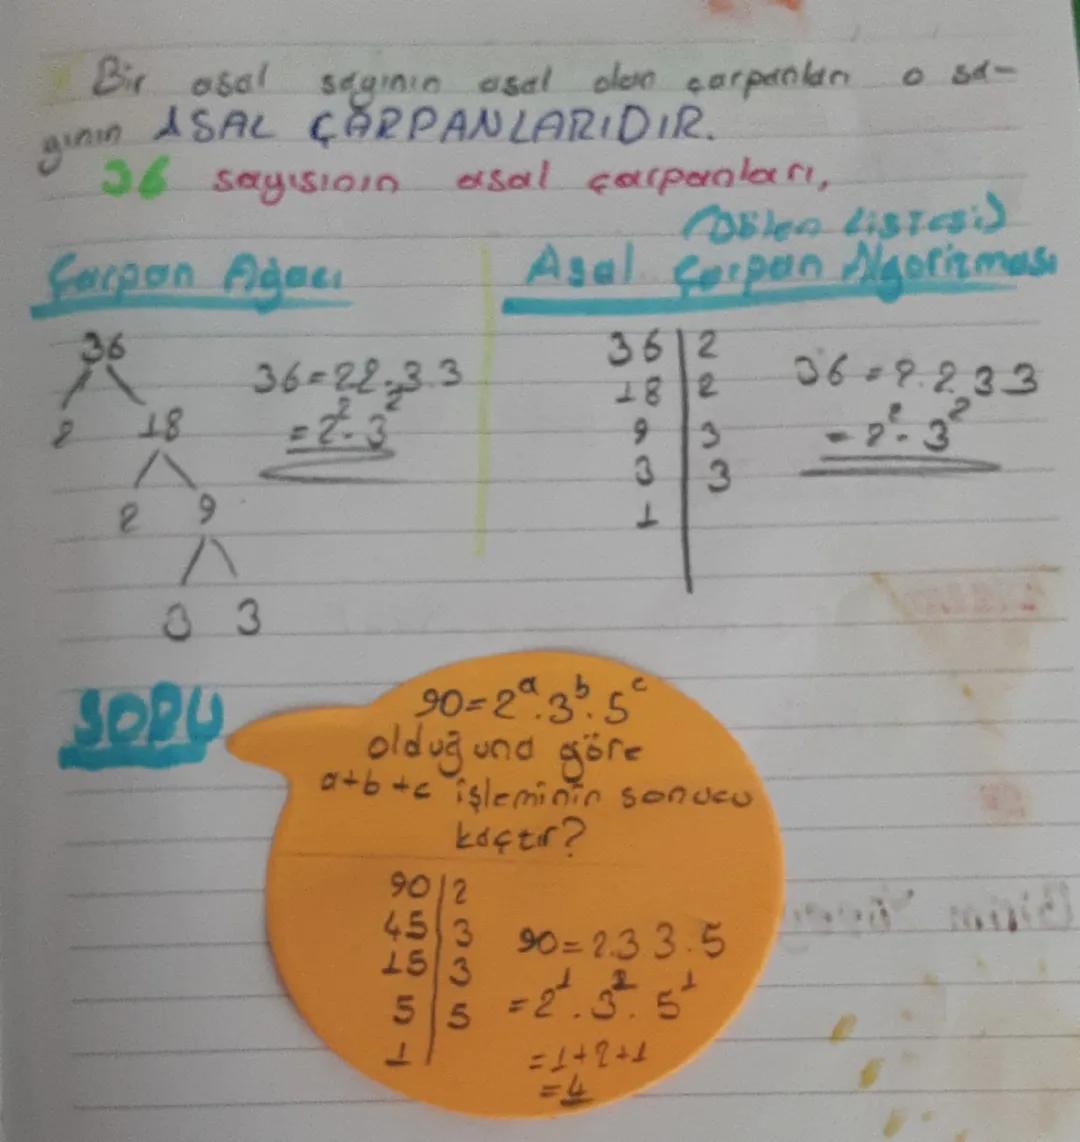 Bir asal sayının asal olan çarpanları o sa-
yının ASAL ÇARPANLARIDIR.
36 sayısının asal çarpanları,
Çarpan Ağacı
36
2 18
2 9
3 3
36=2.2.3.3
=2².3²
(Bölen Listesi)
Asal Çarpan Algoritması
36 | 2
18 | 2
9 | 3
3 | 3
1
36=2.2.3.3
=2².3²
SORU
90=2ᵃ.3ᵇ.5ᶜ
olduğuna göre
a+b+c işleminin sonucu
kaçtır?
90 | 2
45 | 3
15 | 3
5 | 5
1
90=2.3 3.5
=2¹.3².5¹
=1+2+1
=4